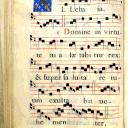 L Lelu ia.
Domine in virtu
te tu a læ tabi tur rex
& super sa luta re tu
um exulta bit ve
he men ter,